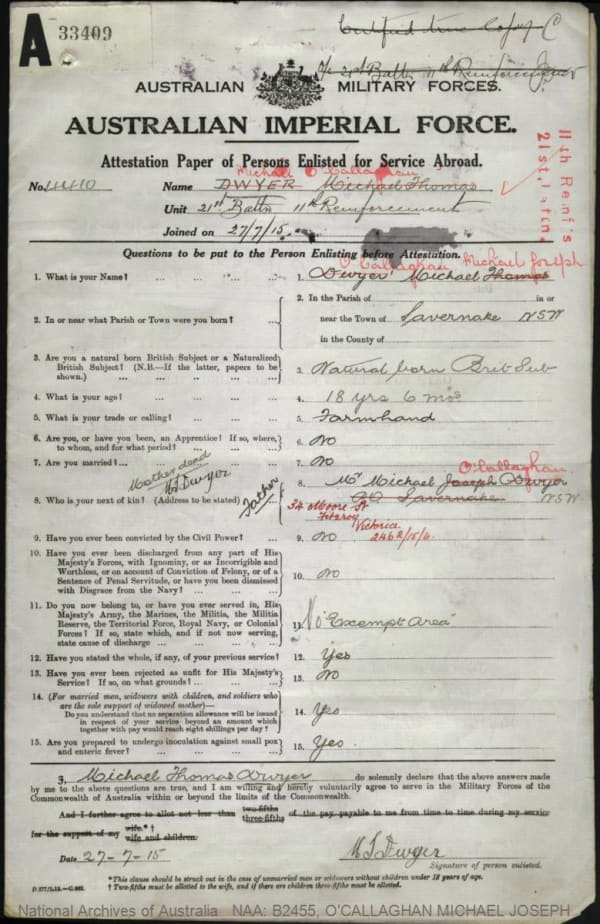 A 33409
Certified true Copy C
2nd Battn 11th Reinforcements
AUSTRALIAN MILITARY FORCES.
AUSTRALIAN IMPERIAL FORCE.
Attestation Paper of Persons Enlisted for Service Abroad.
11th Reinf's
21st Battn.
Michael O'Callaghan
No. 4410 Name DWYER Michael Thomas
Unit 21st Battn 11th Reinforcements
Joined on 27/7/15
Questions to be put to the Person Enlisting before Attestation.
O'Callaghan Michael Joseph
1. What is your Name? ... ... ... ... 1. Dwyer Michael Thomas
2. In or near what Parish or Town were you born? ... 2. In the Parish of in or
near the Town of Savernake NSW
in the County of
3. Are you a natural born British Subject or a Naturalized
British Subject? (N.B.—If the latter, papers to be
shown.) ... ... ... ... 3. Natural born Brit Sub
4. What is your age? ... ... ... ... 4. 18 yrs 6 mos
5. What is your trade or calling? ... ... ... 5. Farmhand
6. Are you, or have you been, an Apprentice? If so, where,
to whom, and for what period? ... ... ... 6. No
7. Are you married? ... ... ... ... 7. No
Mother dead
M.T. Dwyer
O'Callaghan
8. Who is your next of kin? (Address to be stated) ... Father 8. Mr Michael Joseph Dwyer
Savernake NSW
34 Moore St
Fitzroy
Victoria.
9. Have you ever been convicted by the Civil Power? ... 9. No 2462/15/6.
10. Have you ever been discharged from any part of His
Majesty's Forces, with Ignominy, or as Incorrigible and
Worthless, or on account of Conviction of Felony, or of a
Sentence of Penal Servitude, or have you been dismissed
with Disgrace from the Navy? ... ... ... 10. No
11. Do you now belong to, or have you ever served in, His
Majesty's Army, the Marines, the Militia, the Militia
Reserve, the Territorial Force, Royal Navy, or Colonial
Forces? If so, state which, and if not now serving,
state cause of discharge ... ... ... 11. No "Exempt Area"
12. Have you stated the whole, if any, of your previous service? 12. Yes
13. Have you ever been rejected as unfit for His Majesty's
Service? If so, on what grounds? ... ... ... 13. No
14. (For married men, widowers with children, and soldiers who
are the sole support of widowed mother)—
Do you understand that no separation allowance will be issued
in respect of your service beyond an amount which
together with pay would reach eight shillings per day? 14. Yes
15. Are you prepared to undergo inoculation against small pox
and enteric fever? ... ... ... ... 15. Yes.
I, Michael Thomas Dwyer do solemnly declare that the above answers made
by me to the above questions are true, and I am willing and hereby voluntarily agree to serve in the Military Forces of the
Commonwealth of Australia within or beyond the limits of the Commonwealth.
And I further agree to allot not less than two-fifths three-fifths of the pay payable to me from time to time during my service
for the support of my wife.*† wife and children.
Date 27-7-15 M T Dwyer
Signature of person enlisted.
*This clause should be struck out in the case of unmarried men or widowers without children under 18 years of age.
† Two-fifths must be allotted to the wife, and if there are children three-fifths must be allotted.
National Archives of Australia NAA: B2455, O'CALLAGHAN MICHAEL JOSEPH